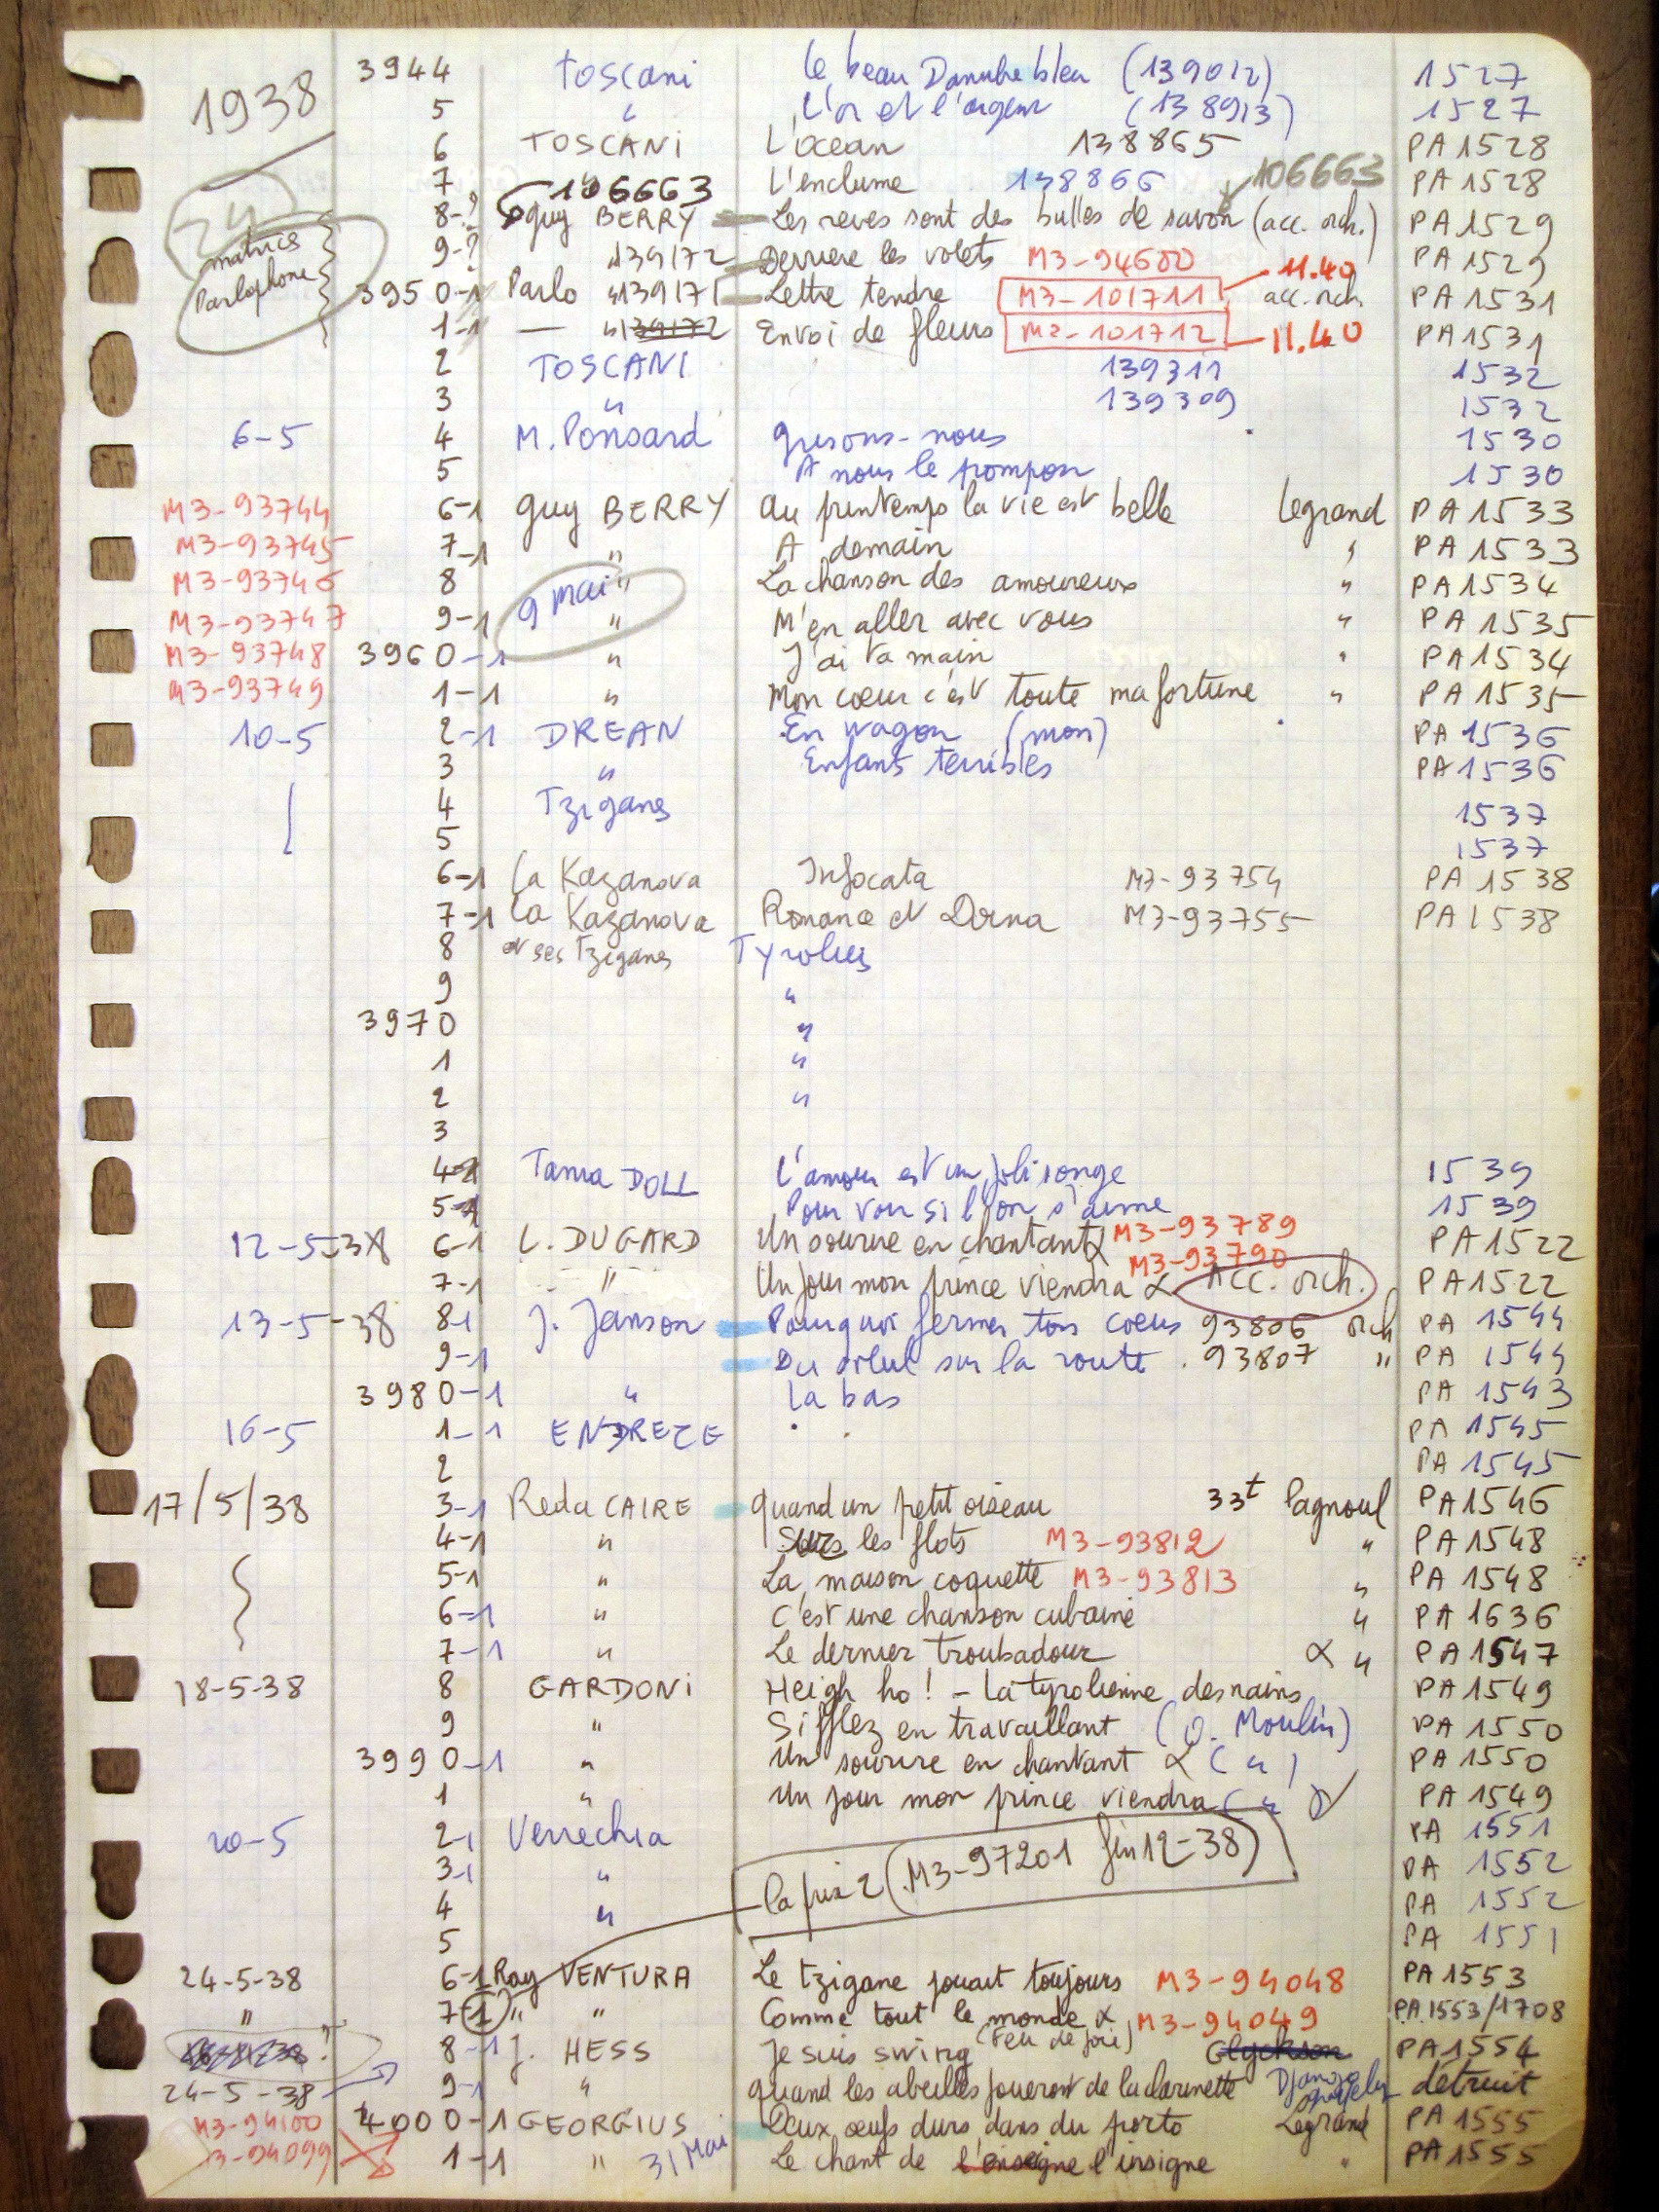 1938 3944 Toscani Le beau Danube bleu (139012) 1527
5 " L'or et l'argent (138913) 1527
6 TOSCANI L'océan 138865 PA 1528
7 " L'enclume 138866 PA 1528
106663 106663
8-? guy BERRY Les reves sont des bulles de savon (acc. orch.) PA 1529
matrices Parlophone
9-? " 139172 Derriere les volets M3-94680 PA 1529
3950-1 Parlo " 139171 Lettre tendre M3-101711 11.40 acc. orch. PA 1531
1-1 — " 139172 Envoi de fleurs M3-101712 11.40 PA 1531
2 TOSCANI 139311 1532
3 " 139309 1532
6-5 4 M. Ponsard grisons-nous 1530
5 A nous le pompon 1530
M3-93744 6-1 guy BERRY Au printemps la vie est belle Legrand PA 1533
M3-93745 7-1 " A demain " PA 1533
M3-93746 8 " La chanson des amoureux " PA 1534
9 mai
M3-93747 9-1 " M'en aller avec vous " PA 1535
M3-93748 3960-1 " J'ai ta main " PA 1534
M3-93749 1-1 " Mon coeur c'est toute ma fortune " PA 1535
10-5 2-1 DREAN En wagon (mon) PA 1536
3 " Enfants terribles PA 1536
4 Tziganes 1537
5 1537
6-1 La Kazanova Infocata M3-93754 PA 1538
7-1 La Kazanova Romance et Dorna M3-93755 PA 1538
8 et ses Tziganes Tyroliens
9 "
3970 "
1 "
2 "
3
4-1 Tania DOLL L'amour est un joli songe 1539
5-1 Pour voir si l'on s'aime 1539
12-5-38 6-1 L. DUGARD Un sourire en chantant α M3-93789 PA 1522
M3-93790
7-1 " Un jour mon prince viendra α Acc. orch. PA 1522
13-5-38 8-1 J. Janson Pourquoi fermer ton coeur 93806 orch PA 1544
9-1 Du soleil sur la route . 93807 " PA 1544
3980-1 " La bas PA 1543
16-5 1-1 ENDREZE PA 1545
2 PA 1545
17/5/38 3-1 Reda CAIRE quand un petit oiseau 33t Pagnoul PA 1546
4-1 " Sur les flots M3-93812 " PA 1548
5-1 " La maison coquette M3-93813 " PA 1548
6-1 " C'est une chanson cubaine " PA 1636
7-1 " Le dernier troubadour α " PA 1547
18-5-38 8 GARDONI Heigh ho! - La tyrolienne des nains PA 1549
9 " Sifflez en travaillant (O. Moulin) PA 1550
3990-1 " Un sourire en chantant α ( " ) PA 1550
1 " Un jour mon prince viendra ( " α PA 1549
20-5 2-1 Verrechia PA 1551
3-1 " PA 1552
la prix 2 (M3-97201 fin 12-38)
4 " PA 1552
5 PA 1551
24-5-38 6-1 Ray VENTURA Le tzigane jouait toujours M3-94048 PA 1553
" 7-1 " " Comme tout le monde α M3-94049 PA 1553/1708
? 8-1 J. HESS Je suis swing (Feu de joie) Glyckson PA 1554
24-5-38 9-1 " quand les abeilles joueront de la clarinette Django détruit
M3-94100 4000-1 GEORGIUS Deux œufs durs dans du porto Legrand PA 1555
M3-94099 1-1 " 31 Mai Le chant de l'enseigne l'insigne " PA 1555